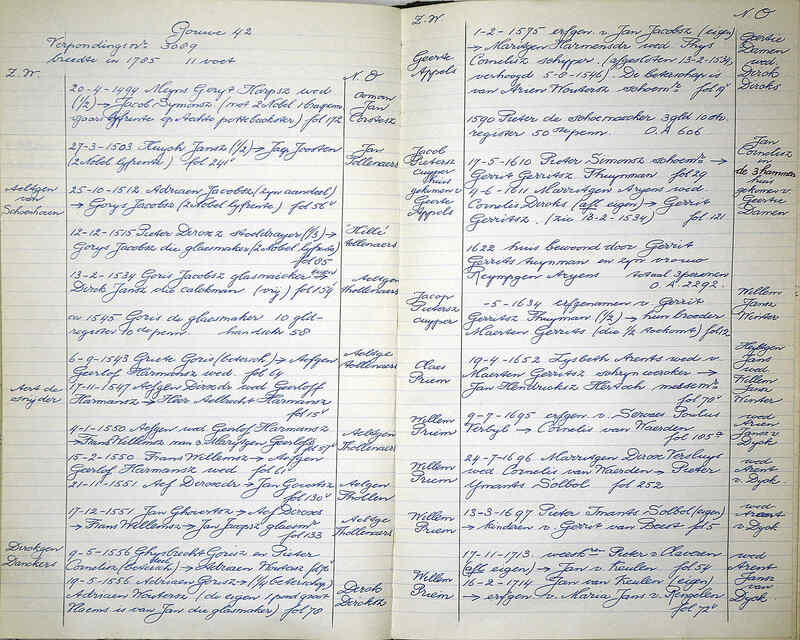 Gouwe 42
Verpondings No. 3009
breedte in 1705 11 voet
Z.W.
N.O
20-4-1494 Meyns Gorys Harpsz wed
(½) → Jacob Symonsz (met 2 Nobel
lyfrente op Aechte pottebacksters) fol 172
Jan
Corstersz
27-3-1503 Huych Jansz (½) → Jan Joosten
(2 Nobel lyfrente) fol 241v
Jan
Tollenaers
Aeltgen
van
Schoenhoven
25-10-1512 Adriaen Jacobsz (zyn aandeel)
→ Gorys Jacobsz (2 Nobel lyfrente) fol 56v
12-12-1515 Pieter Dircxz stoeldrayer (⅓) →
Gorys Jacobsz die glasmaker (2 Nobel lyfrente)
fol 85
Hille
Tollenaers
13-2-1534 Goris Jacobsz glasmaicker →
Dirck Jansz die calckman (vry) fol 134
Aeltgen
Thollenaers
ca 1545 Goris de glasmaker 10 gld-
register 10de penn. handschr 58
6-9-1543 Griete Goris (betersch) → Aefgen
Geerlof Harmansz wed. fol 64
Aeltge
Tollenaers
Aert de
snyder
17-11-1547 Aefgen Dircxdr wed Geerloff
Harmansz → Heer Aelbrecht Harmansz
fol 15v
4-1-1550 Aefgen wed Geerlof Harmansz
→ Frans Willemsz man v Marytgen Geerlofs fol 57v
Aeltgen
Thollenaers
15-2-1550 Frans Willemsz → Aefgen
Geerlof Harmansz wed fol 61v
21-11-1551 Aef Dircxdr → Jan Govertsz
fol 130v
Aelgen
Thollen
17-12-1551 Jan Ghovertsz → Aef Dircxes
→ Frans Willemsz → Jan Jacopsz glasemr
fol 133
Aeltge
Thollenaers
Dirckgen
Danckers
9-5-1556 Ghysbrecht Gorisz en Pieter
Cornelisz (betersch) → Adriaen Woutersz fol 70
19-5-1556 Adriaen Gorisz → (¼ beterschap)
Adriaen Woutersz (de eigen 1 pond groot
Vlaems is van Jan die glasmaker) fol 70
Dirck
Dircksz
Z.W.
N O
Geerte
Appels
1-2-1575 erfgen v Jan Jacobsz (eigen)
→ Maritgen Harmensdr wed Thys
Cornelisz schipper. (afgesloten 13-2-1534,
verhoogd 5-8-1546). De beterschap is
van Arien Woutersz schoemr fol 19v
Geertie
Damen
wed
Dirck
Dircks
1590 Pieter de schoemaecker 3 gld 10 st.
register 50ste penn. O.A 606
Jacob
Pietersz
cuyper
thuis
gekomen v
Geerte
Appels
17-5-1610 Pieter Simonsz schoemr →
Gerrit Gerritsz Thuynman fol 29
4-6-1611 Marritgen Aryens wed
Cornelis Dircks (afl. eigen) → Gerrit
Gerritsz. (zie 13-2-1534) fol 121
Jan
Cornelisz
in
de 3 hammen
huis
gekomen v
Geertie
Damen
1622 huis bewoond door Gerrit
Gerrits tuynman en zyn vrouw
Reympgen Aryens totaal 3 personen
O.A 2292.
Jacop
Pietersz
cuyper
-5-1634 erfgenamen v Gerrit
Gerritsz Thuynman (½) → hun broeder
Maerten Gerrits (die ½ toekomt) fol 12
Willem
Jansz
Winter
Claes
Priem
19-4-1652 Lysbeth Arents wed v
Maerten Gerritsz schrynwercker →
Jan Hendricksz Hertoch messemr
fol 70v
Heyltgen
Jans
wed
Willem
Jansz
Winter
Willem
Priem
9-7-1695 erfgen v. Servaes Poulus
Verbyl → Cornelis van Waerden
fol 105v
wed
Arien
Jansz v
Dyck
Willem
Priem
24-7-1696 Marritgen Dircx Versluys
wed Cornelis van Waerden → Pieter
Ymants Solbol fol 252
wed
Arent
v Dyck.
Willem
Priem
13-3-1697 Pieter Imants Solbol (eigen)
→ kinderen v. Gerrit van Beest fol 5
wed
Arent
v Dyck
Willem
Priem
17-11-1713. weeskn Pieter v Claveren
(afl eigen) → Jan v Keulen fol 54
16-2-1714 Jan van Keulen (eigen)
→ erfgen v. Maria Jans v Rengelen
fol 72v
wed
Arent
Jansz
van
Dyck.